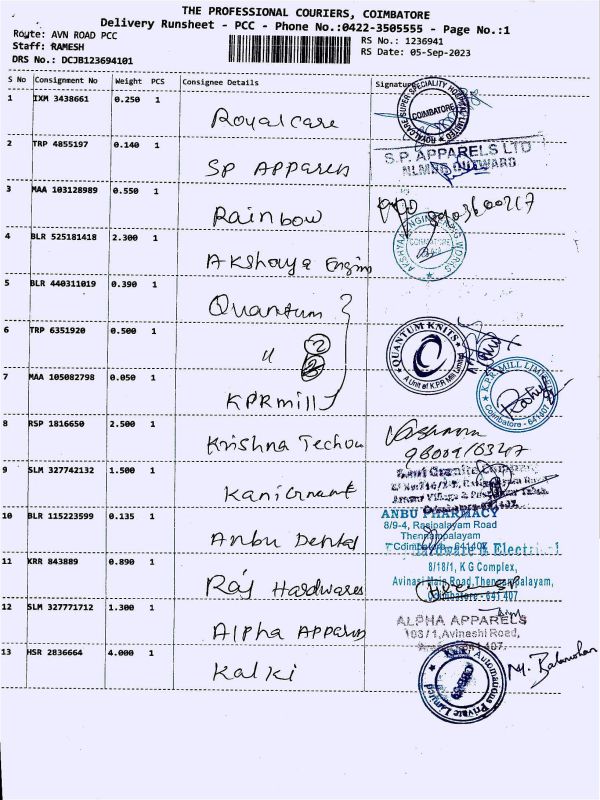 THE PROFESSIONAL COURIERS, COIMBATORE
Delivery Runsheet - PCC - Phone No.:0422-3505555 - Page No.:1
Route: AVN ROAD PCC
RS No.: 1236941
Staff: RAMESH
RS Date: 05-Sep-2023
DRS No.: DCJB123694101
S No Consignment No Weight PCS Consignee Details Signature
1 IXM 3438661 0.250 1 Royal care
ROYALCARE SUPER SPECIALITY HOSPITAL LIMITED COIMBATORE
2 TRP 4855197 0.140 1 SP Apparels
S.P. APPARELS LTD
INWARD
3 MAA 103128989 0.550 1 Rainbow
4 BLR 525181418 2.300 1 Akshaya Engin
AKSHYAA ENGINEERING WORKS COIMBATORE
5 BLR 440311019 0.390 1 Quantum
QUANTUM KNITS
A Unit of K.P.R Mill Limited
6 TRP 6351920 0.500 1 "
2
7 MAA 105082798 0.050 1 KPR mill
K.P.R. MILL LIMITED
Coimbatore - 641 407
8 RSP 1816650 2.500 1 Krishna Techou
9 SLM 327742132 1.500 1 Kani Granit
Kani Granite Company
10 BLR 115223599 0.135 1 Anbu Dental
ANBU PHARMACY
8/9-4, Rasipalayam Road
Thennampalayam
Coimbatore - 641407
11 KRR 843889 0.890 1 Raj Hardwares
Hardware & Electrical
8/18/1, K G Complex,
Avinasi Main Road, Thennampalayam,
Coimbatore - 641 407
12 SLM 327771712 1.300 1 Alpha Apparels
ALPHA APPARELS
108/1, Avinashi Road,
13 HSR 2836664 4.000 1 Kalki
Kalki Automaduos Private Limited